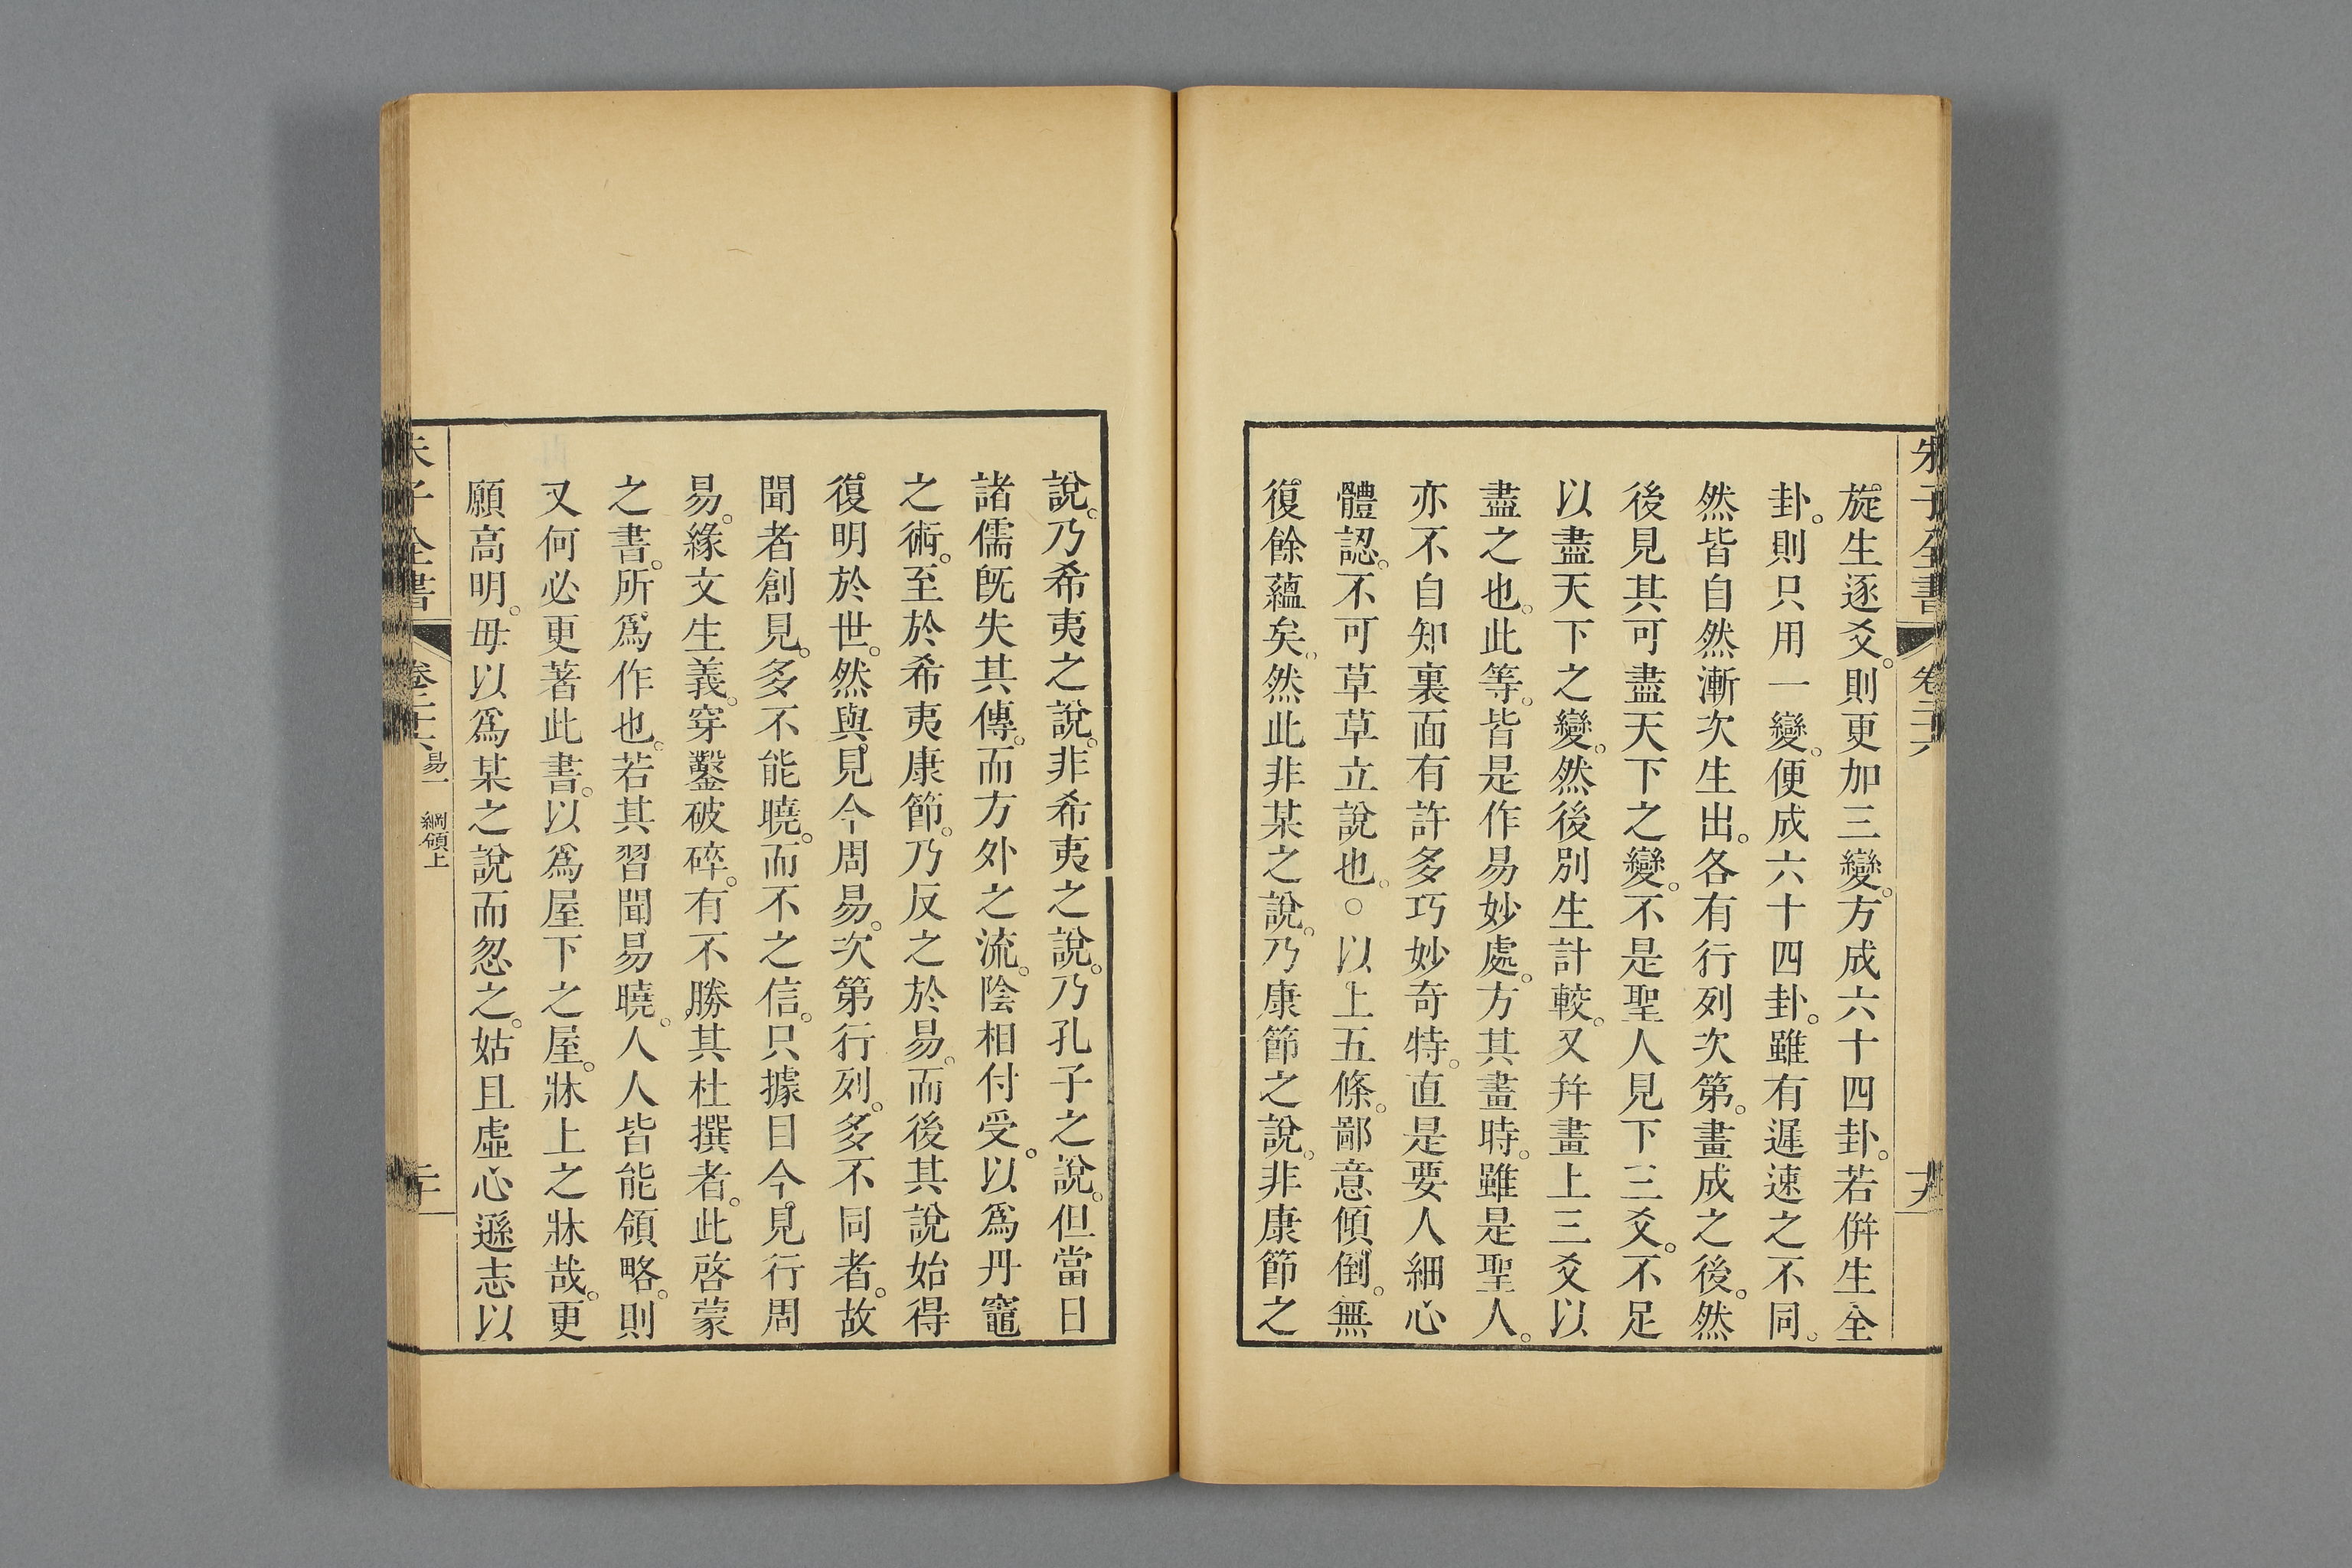 朱子全書 卷二十六 十九
旋生逐爻。則更加三變。方成六十四卦。若倂生全
卦。則只用一變。便成六十四卦。雖有遲速之不同。
然皆自然漸次生出。各有行列次第。畫成之後。然
後見其可盡天下之變。不是聖人見下三爻。不足
以盡天下之變。然後別生計較。又幷畫上三爻以
盡之也。此等。皆是作易妙處。方其畫時。雖是聖人。
亦不自知裏面有許多巧妙奇特。直是要人細心
體認。不可草草立說也。○以上五條。鄙意傾倒。無
復餘蘊矣。然此非某之說。乃康節之說。非康節之
說。乃希夷之說。非希夷之說。乃孔子之說。但當日
諸儒旣失其傳。而方外之流。陰相付受。以爲丹竈
之術。至於希夷康節。乃反之於易。而後其說始得
復明於世。然與見今周易。次第行列。多不同者。故
聞者創見。多不能曉。而不之信。只據目今見行周
易。緣文生義。穿鑿破碎。有不勝其杜撰者。此啓蒙
之書。所爲作也。若其習聞易曉。人人皆能領略。則
又何必更著此書。以爲屋下之屋。牀上之牀哉。更
願高明。毋以爲某之說而忽之。姑且虛心遜志以
朱子全書 卷二十六 易一 綱領上 二十